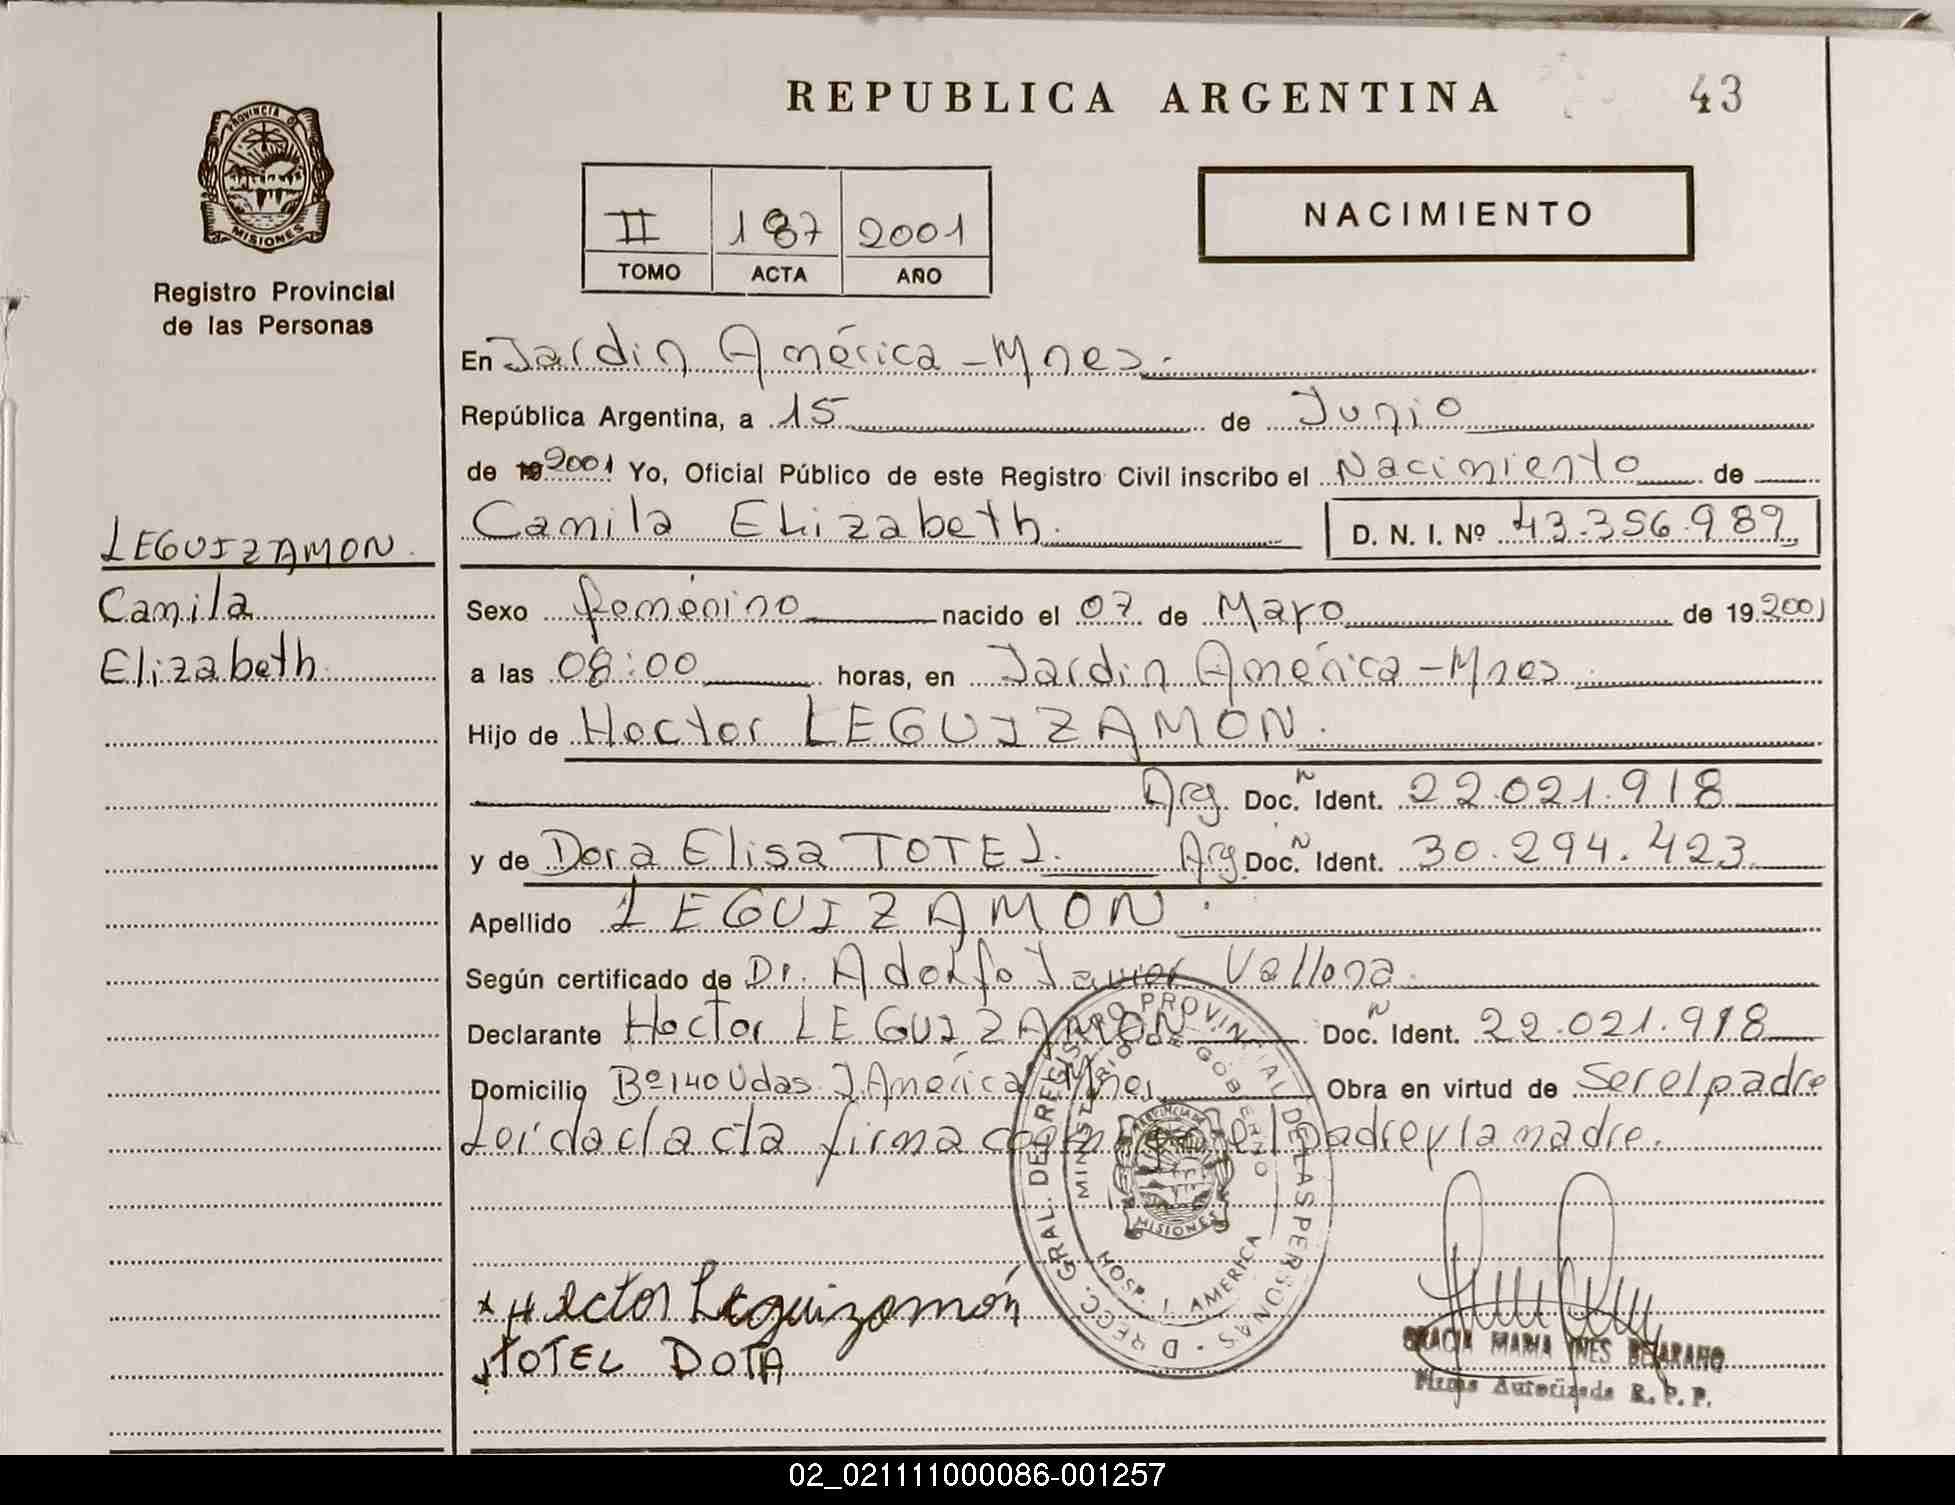 REPUBLICA ARGENTINA
43
PROVINCIA DE
MISIONES
Registro Provincial
de las Personas
II 187 2001
TOMO ACTA AÑO
NACIMIENTO
En Jardin América - Mnes.
República Argentina, a 15 de Junio
de 19 2001 Yo, Oficial Público de este Registro Civil inscribo el Nacimiento de
Camila Elizabeth. D. N. I. Nº 43.356.989
LEGUIZAMON.
Camila
Elizabeth.
Sexo femenino nacido el 07 de Mayo de 19 2001
a las 08:00 horas, en Jardin América - Mnes.
Hijo de Hector LEGUIZAMÓN.
Arg. Doc. N Ident. 22.021.918
y de Dora Elisa TOTEL. Arg. Doc. N Ident. 30.294.423
Apellido LEGUIZAMON.
Según certificado de Dr. Adolfo Javier Vallona.
Declarante Hector LEGUIZAMÓN Doc. N Ident. 22.021.918
Domicilio Bº 140 Vdas. J. América Mnes. Obra en virtud de Ser el padre
Leída el acta firma el padre y la madre.
DIRECC. GRAL. DEL REGISTRO PROVINCIAL DE LAS PERSONAS
MINISTERIO DE GOBIERNO
PROVINCIA DE
MISIONES
HOSP. J. AMERICA
x Hector Leguizamón
TOTEL DOTA
GRACIA MARIA INES BEJARANO
Firma Autorizada R. P. P.
02_021111000086-001257